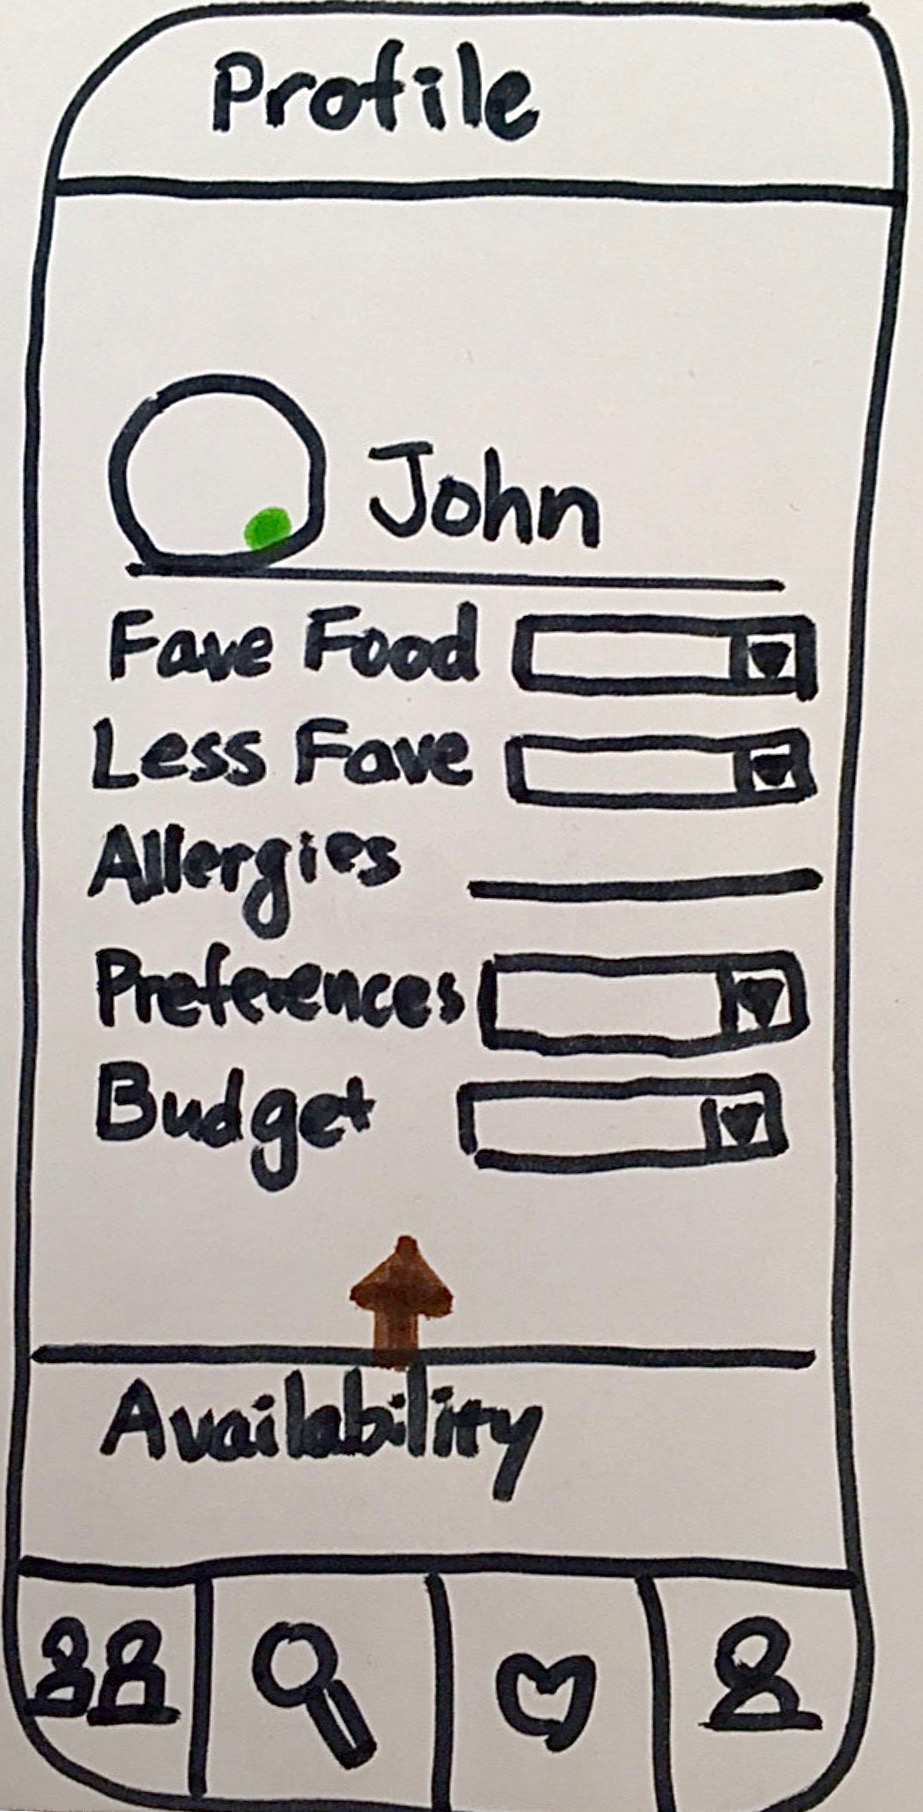 Profile
John
Fave Food
Less Fave
Allergies
Preferences
Budget
Availability